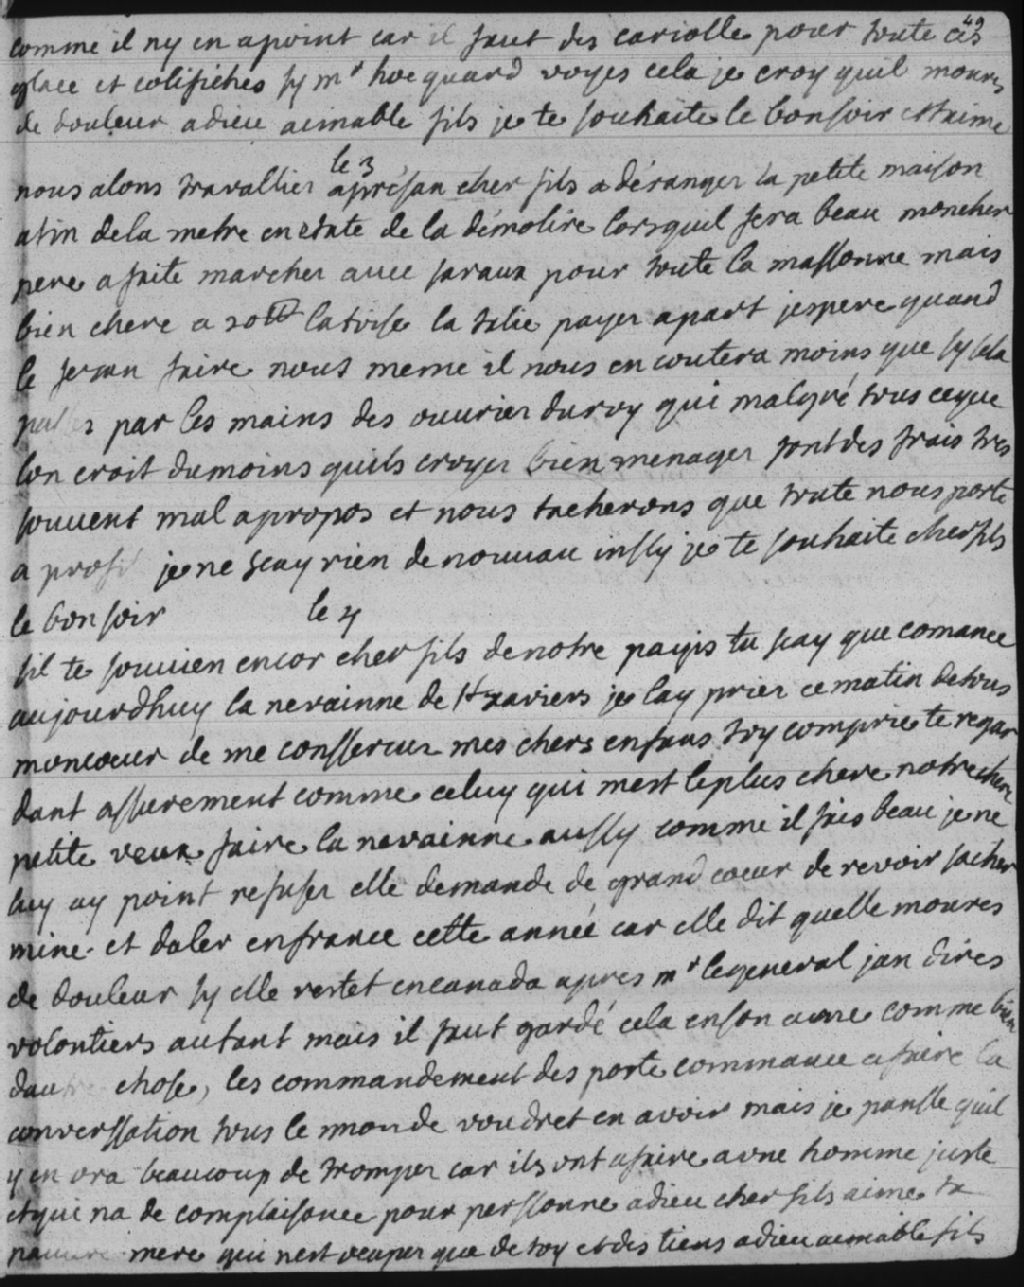 49
comme il ny en a point car il faut des cariolle pour toute ces
glace et colifiches sy mr hocquard voyes cela je croy quil moures
de douleur adieu aimable fils je te souhaite le bonsoir et taime
le 3
nous alons travallier aprésan cher fils a déranger la petite maison
afin dela metre en état de la démolire lorsquil sera beau mon cher
pere a faite marcher avec jaraux pour toute la massonne mais
bien chere a 20ʰ la toise la talie payer apart jespere quand
le fesan faire nous meme il nous en coutera moins que sy sela
par les mains des ouvrier du roy qui malgré tous ceque
lon croit du moins quils croyer bien menager font des frais tres
souvent mal apropos et nous tacherons que toute nous porte
a profi je ne scay rien de nouveau issy je te souhaite cher fils
le bonsoir le 4
sil te souvien encor cher fils de notre payis tu scay que comance
aujourdhuy la nevainne de st xaviers je lay prier ce matin de tous
mon coeur de me consserver mes chers enfans toy comprie te regar
dant assurement comme celuy qui mest le plus chere notre chere
petite veux faire la nevainne aussy comme il fais beau je ne
luy ay point refuser elle demande de grand coeur de revoir sa cher
mine et daler en france cette année car elle dit quelle moures
de douleur sy elle restet en canada apres mr le general jan dires
volontiers autant mais il faut gardé cela en son ame comme bien
dautre chose, les commandement des poste commance a faire la
converssation tous le monde voudret en avoir mais je pansse quil
y en ora beaucoup de tromper car ils ont a faire a une homme juste
et qui na de complaisance pour perssonne adieu cher fils aime ta
pauvre mere qui nest ocuper que de toy et des tiens adieu aimable fils